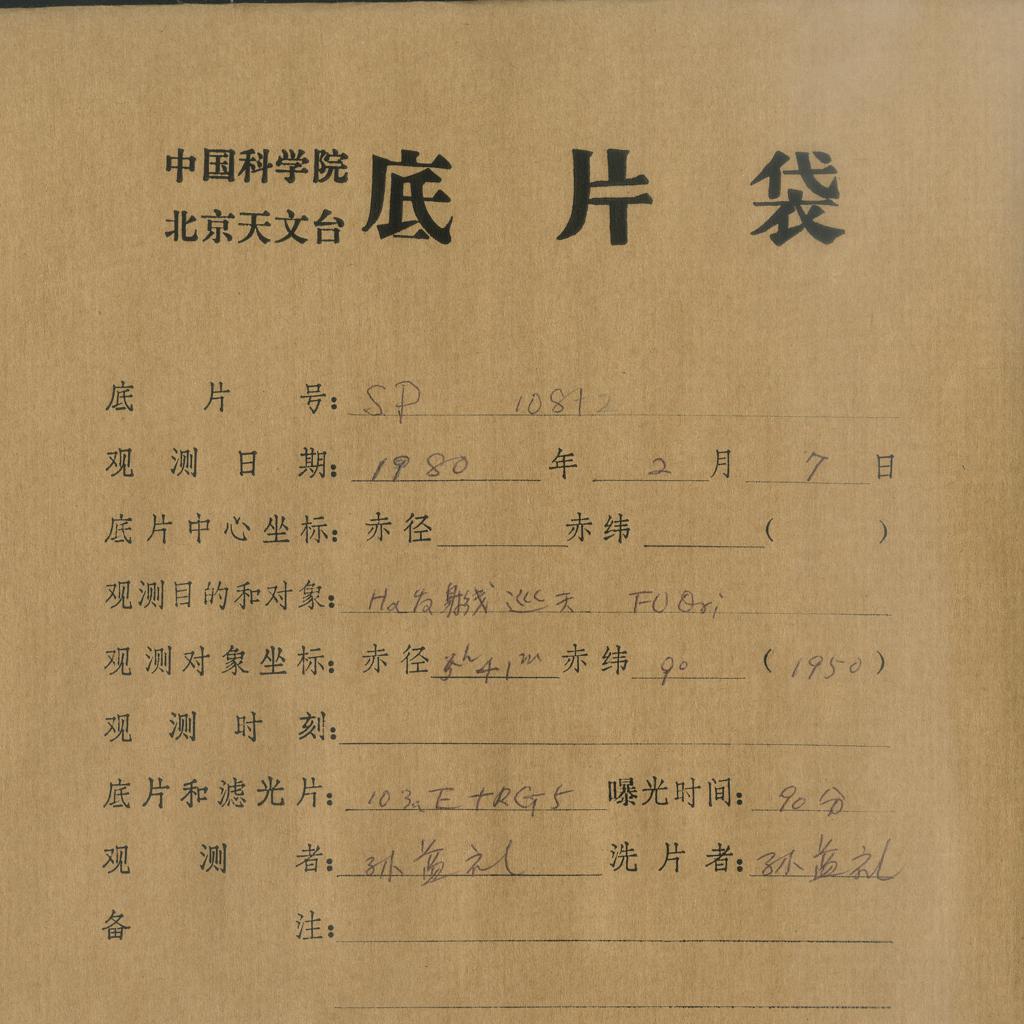 中国科学院
北京天文台
底片袋
底片号: SP 10812
观测日期: 1980 年 2 月 7 日
底片中心坐标: 赤径 赤纬 ( )
观测目的和对象: Hα发射线巡天 FU Ori
观测对象坐标: 赤径 5h 41m 赤纬 9° (1950)
观测时刻:
底片和滤光片: 103aE+RG5 曝光时间: 90分
观测者: 孙益礼 洗片者: 孙益礼
备注: